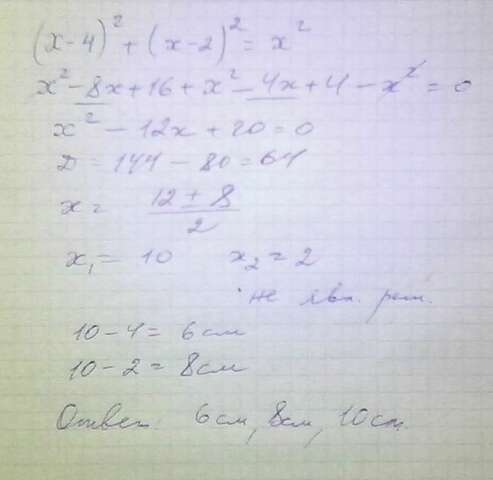 (x-4)² + (x-2)² = x²
x² - 8x + 16 + x² - 4x + 4 - x² = 0
x² - 12x + 20 = 0
D = 144 - 80 = 64
x = (12 ± 8)/2
x₁ = 10 x₂ = 2
не явл. реш.
10 - 4 = 6 см
10 - 2 = 8 см
Ответ: 6 см, 8 см, 10 см.